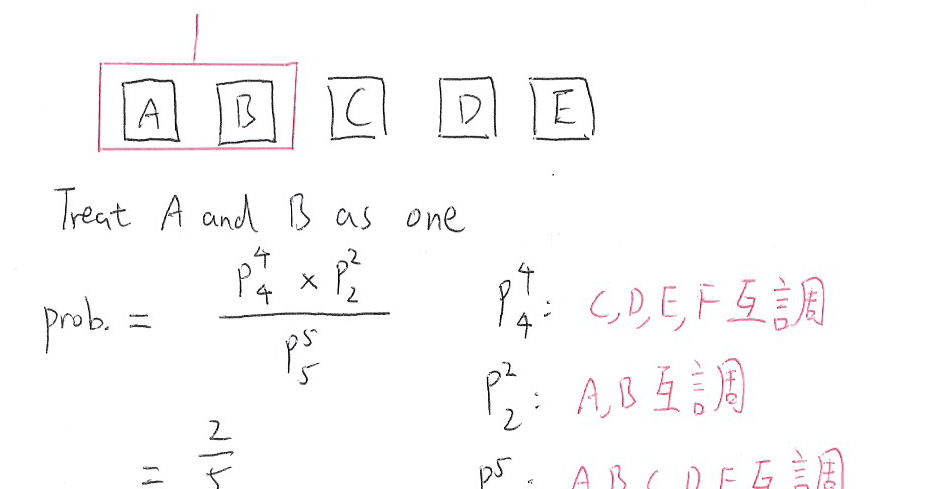 A B C D E
Treat A and B as one
prob. = P⁴₄ × P²₂ / P⁵₅
P⁴₄: C,D,E,F互調
P²₂: A,B互調
= 2/5
P⁵ : A B C D E互調